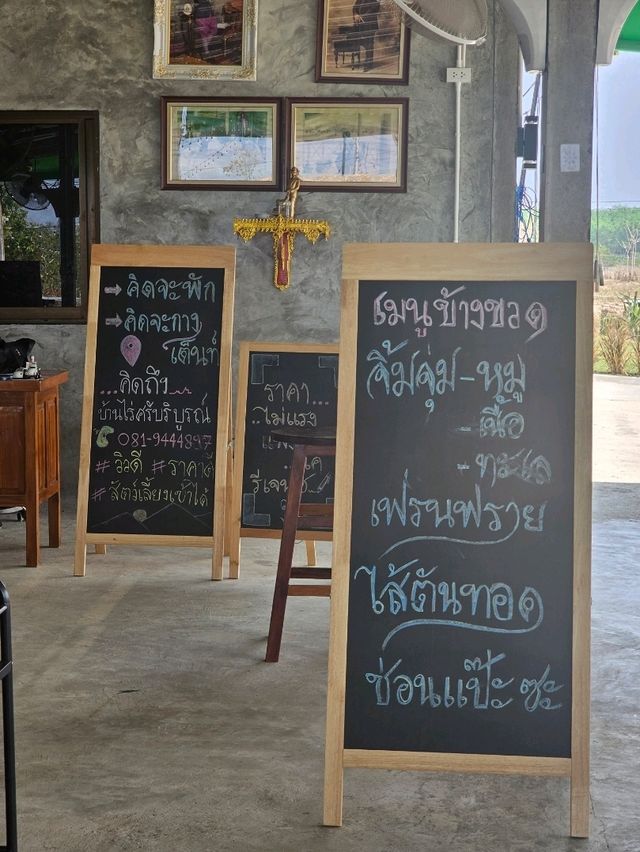 → คิดจะพัก
→ คิดจะกาง
เต็นท์
...คิดถึง...
บ้านไร่ศรีบริบูรณ์
081-9444897
# วิวดี # ราคาดี
# สัตว์เลี้ยงเข้าได้
ราคา...
..ไม่แรง
รีเจนซี่
เมนูข้างขวด
จิ้มจุ่ม-หมู
-เนื้อ
-ทะเล
เฟรนฟราย
ไส้ตันทอด
ช่อนแป๊ะซะ